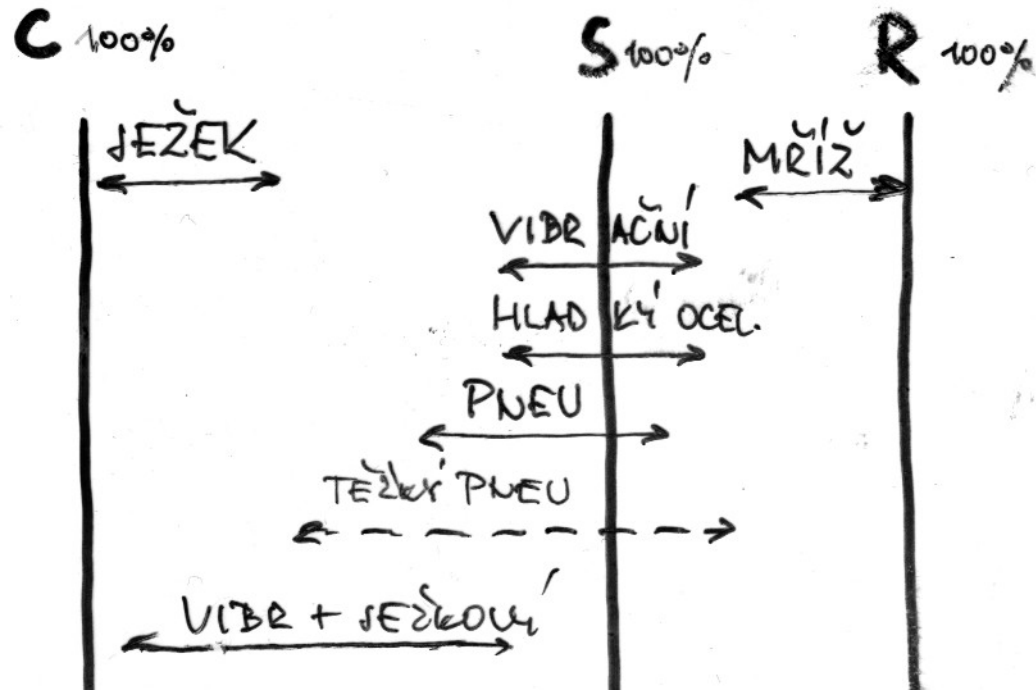 C 100% S 100% R 100%
JEŽEK
MŘÍŽ
VIBRAČNÍ
HLADKÝ OCEL.
PNEU
TĚŽKÝ PNEU
VIBR + JEŽKOVÝ